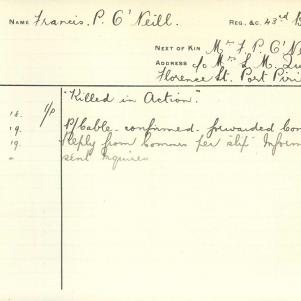 NAME Francis. P. O'Neill. REG. &C. 43rd B
NEXT OF KIN Mrs F. P. O'Ne
ADDRESS c/o Mrs L. M.
Florence St. Port Piri
"Killed in Action".
16. 
19. P/Cable confirmed. forwarded Com
19. Reply from Commr per slip Inform
" sent Inquiries